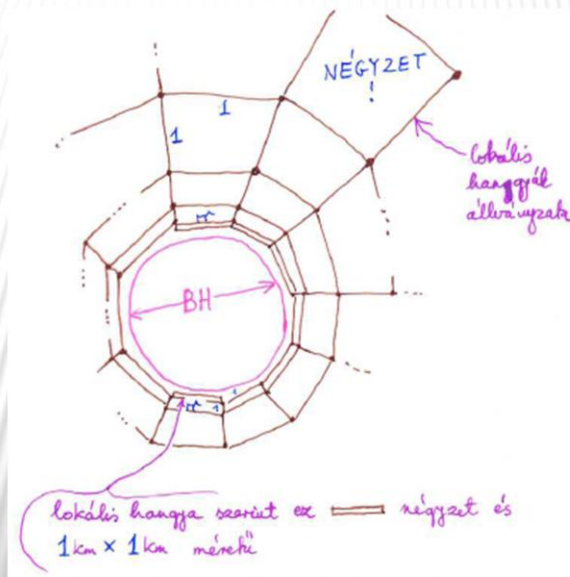 NÉGYZET
!
1
1
lokális
hangyák
állványzata
BH
1
lokális hangya szerint ez négyzet és
1km × 1km méretű